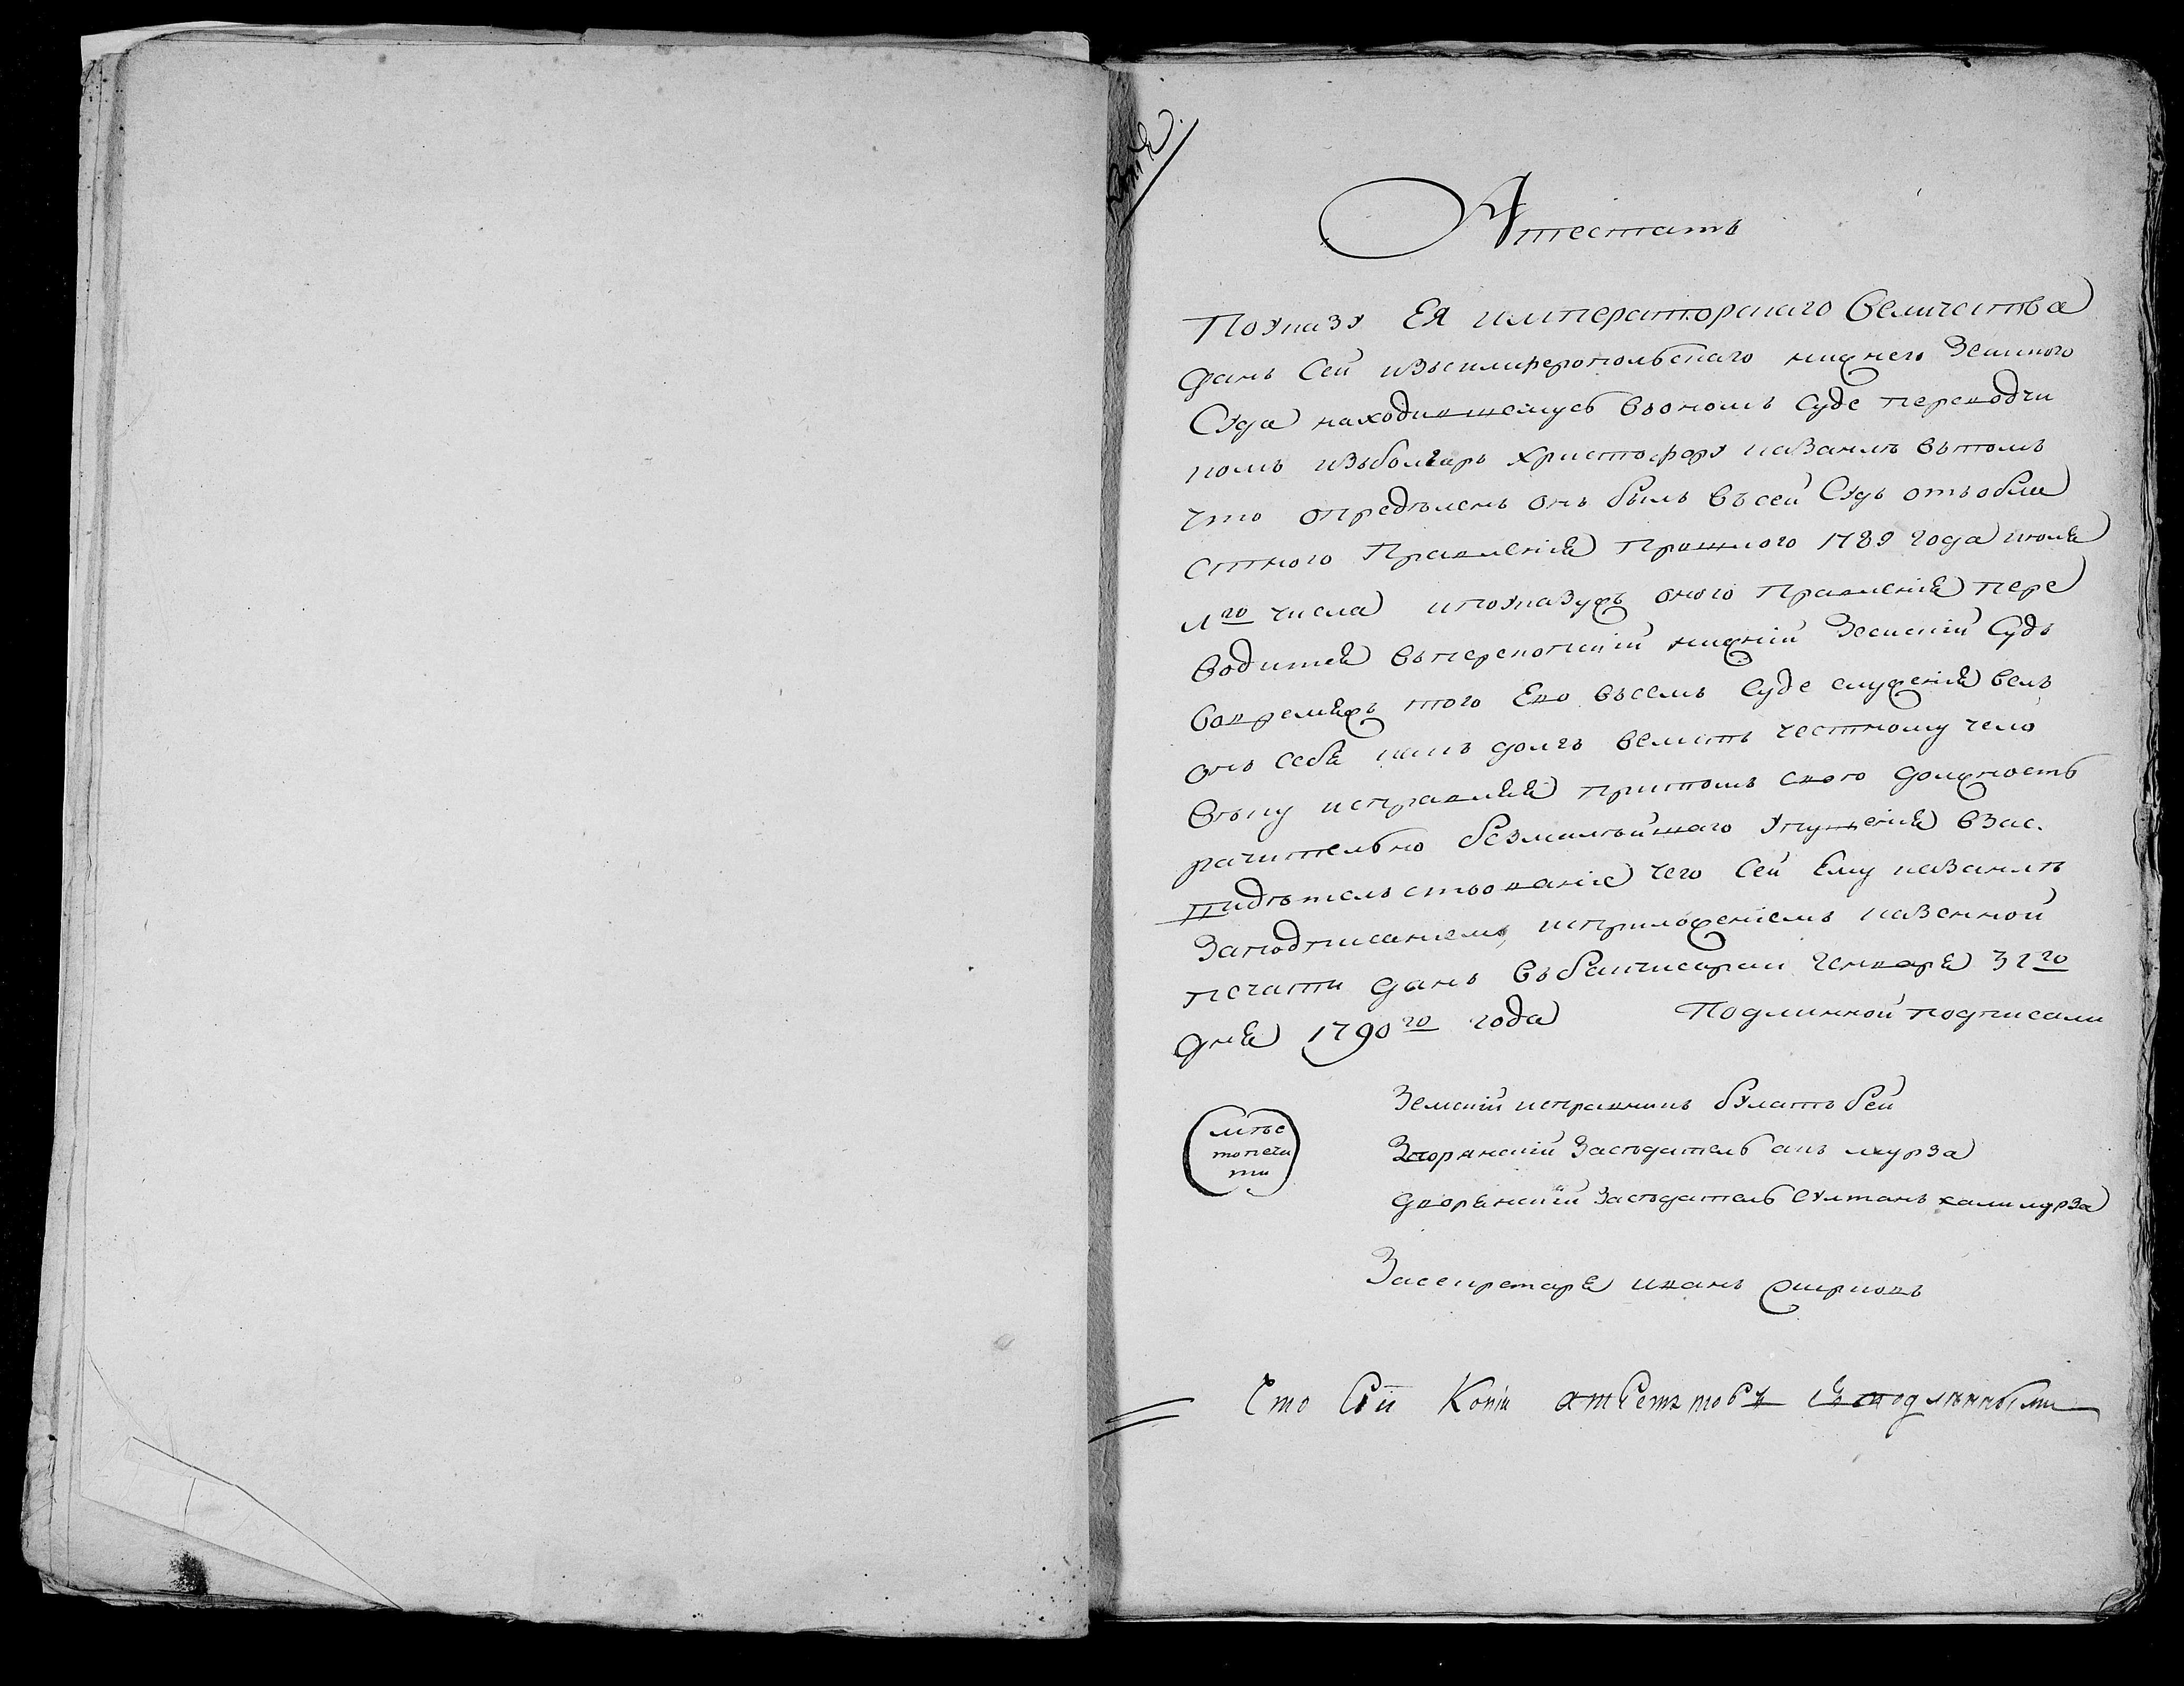 Атестатъ
По указу ЕЯ императорскаго Величества
данъ сей изъсимферопольскаго нижнего Земского
Суда находившемусь въономъ суде переводчи
комъ изъболгаръ христофору казанлъ втомъ
что определенъ онъ былъ въсей Судъ отъобла
стного Правления Прошлого 1789 года июля
1го числа ипоуказужъ оного Правления пере
водится въперекопский нижний Земский Судъ
вовремяжъ того Ево въсемъ суде служения велъ
онъ себя какъ долгъ велитъ честному чело
веку исправляя притомъ свою должность
рачительно безмалейшаго упущения взас
видетельствование чего сей Ему казанлъ
Заподписаниемъ, иприложениемъ казенной
печати данъ въбахчисараи генваря 31го
дня 1790го года Подлинной подписали
Земский исправникъ булатъ бей
Дворянский Заседатель акъ мурза
дворянский Заседатель султанъ хали мурза
мѣс
то печа
ти
Засекретаря иванъ смирновъ
Что Сіи Копіи атестатовъ съ подлѣнными